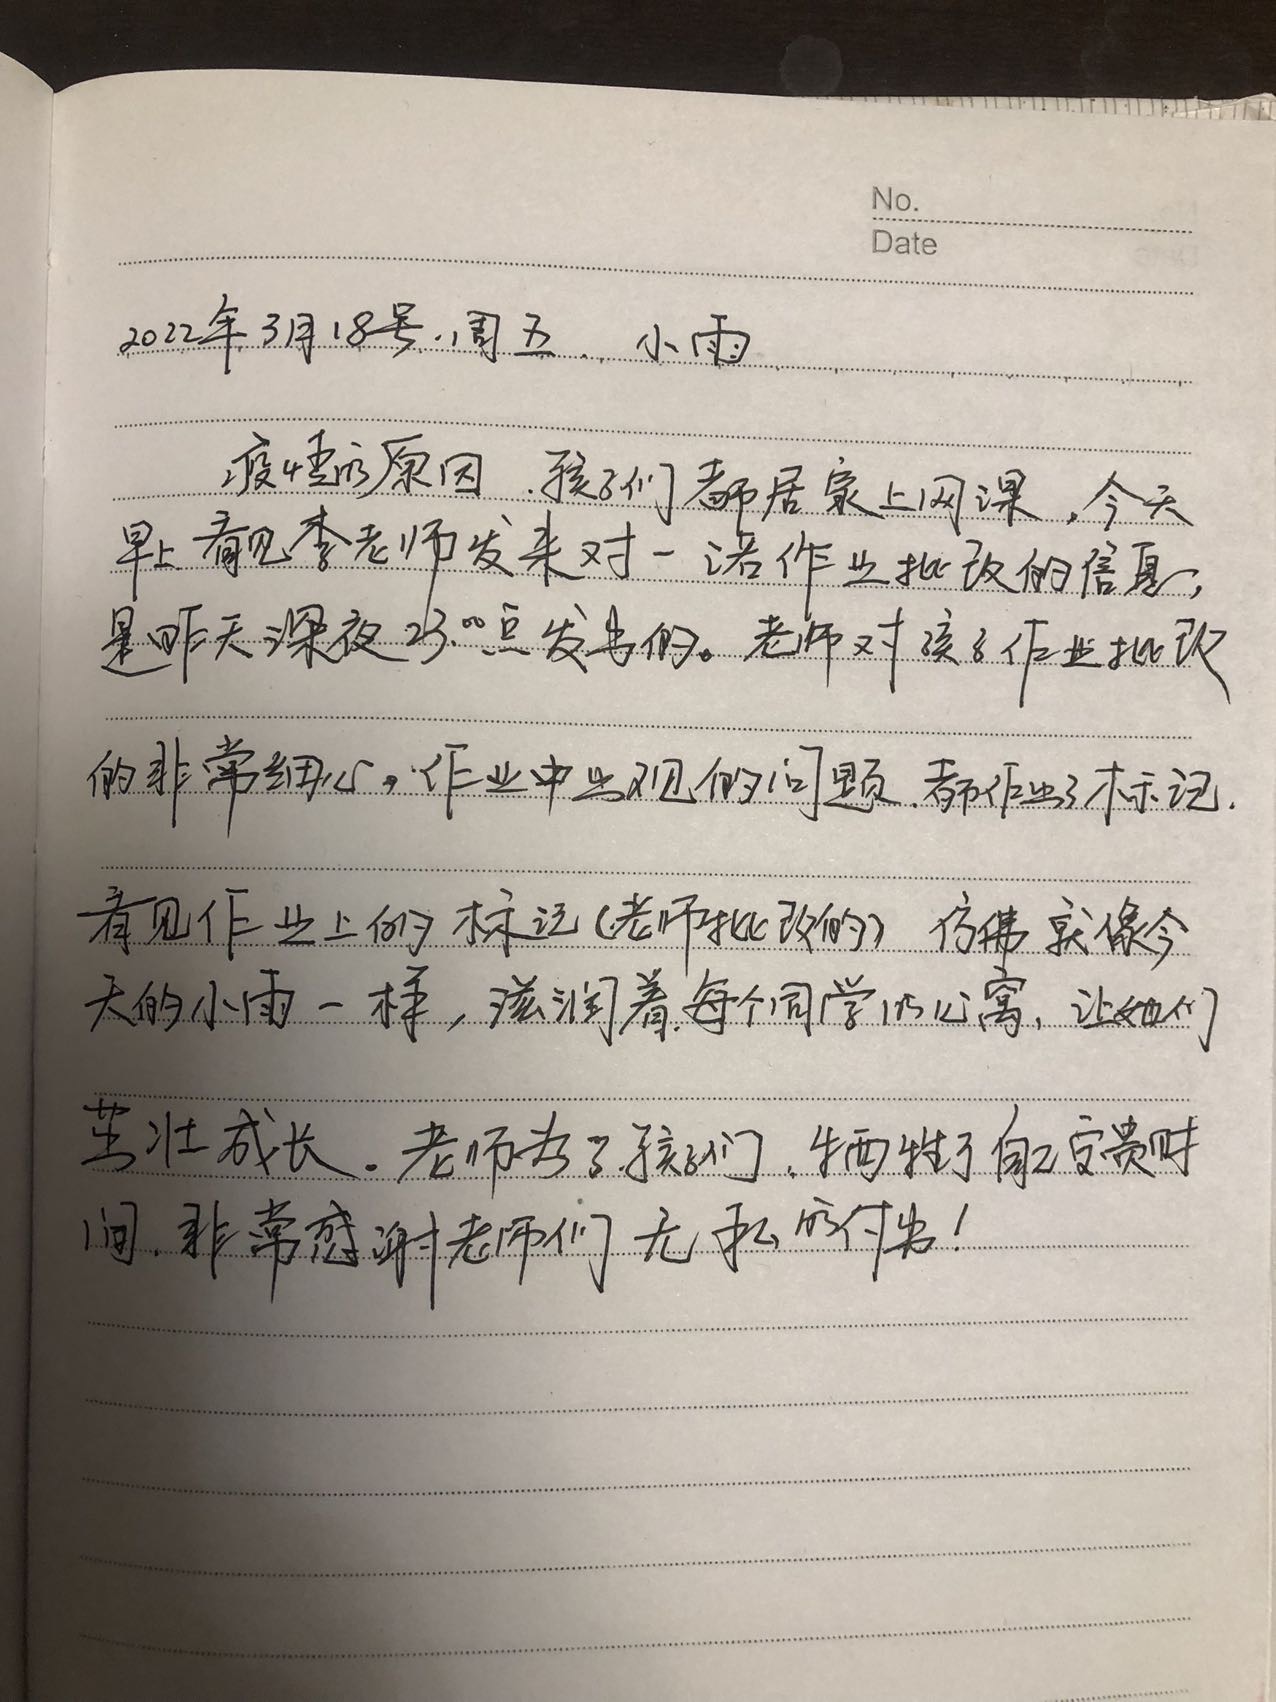 No.
Date
2022年3月18号.周五. 小雨
疫情的原因.孩子们都居家上网课,今天
早上看见李老师发来对一诺作业批改的信息,
是昨天深夜23:00点发出的。老师对孩子作业批改
的非常细心,作业中出现的问题.都作出了标记.
看见作业上的标记(老师批改的)仿佛就像今
天的小雨一样,滋润着每个同学的心窝,让她们
茁壮成长。老师为了孩子们,牺牲了自己宝贵时
间.非常感谢老师们无私的付出!